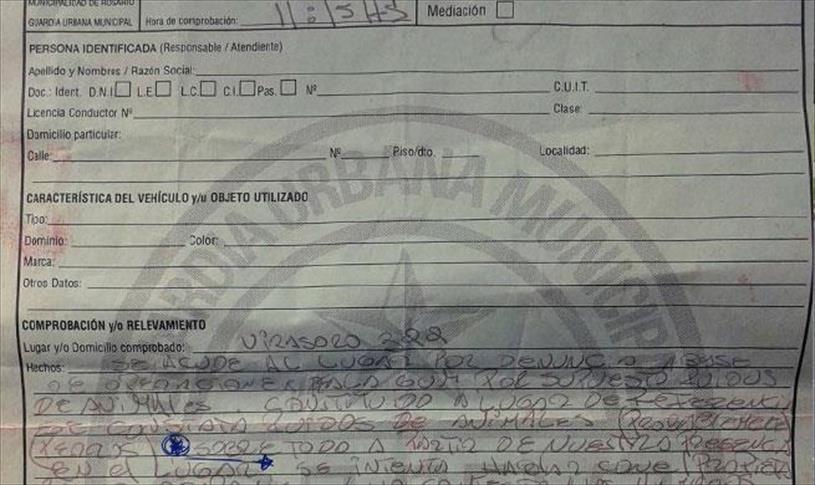 MUNICIPALIDAD DE ROSARIO
GUARDIA URBANA MUNICIPAL Hora de comprobación: 11:15 HS Mediación
PERSONA IDENTIFICADA (Responsable / Atendiente)
Apellido y Nombres / Razón Social:
Doc.: Ident. D.N.I. L.E. L.C. C.I. Pas. Nº C.U.I.T.
Licencia Conductor Nº Clase:
Domicilio particular:
Calle: Nº Piso/dto. Localidad:
GUARDIA URBANA MUNICIP
CARACTERÍSTICA DEL VEHÍCULO y/u OBJETO UTILIZADO
Tipo:
Dominio: Color:
Marca:
Otros Datos:
COMPROBACIÓN y/o RELEVAMIENTO
Lugar y/o Domicilio comprobado: VIRASORO
Hechos: SE ACUDE AL LUGAR POR DENUNCIA A BASE
DE OPERACIONES GUM POR SUPUESTO RUIDOS
DE ANIMALES. CONSTITUIDO A LUGAR DE REFERENCIA
SE CONSTATA RUIDOS DE ANIMALES
PERROS) SOBRE TODO A PARTIR DE NUESTRA PRESENCIA
EN el LUGAR SE INTENTA